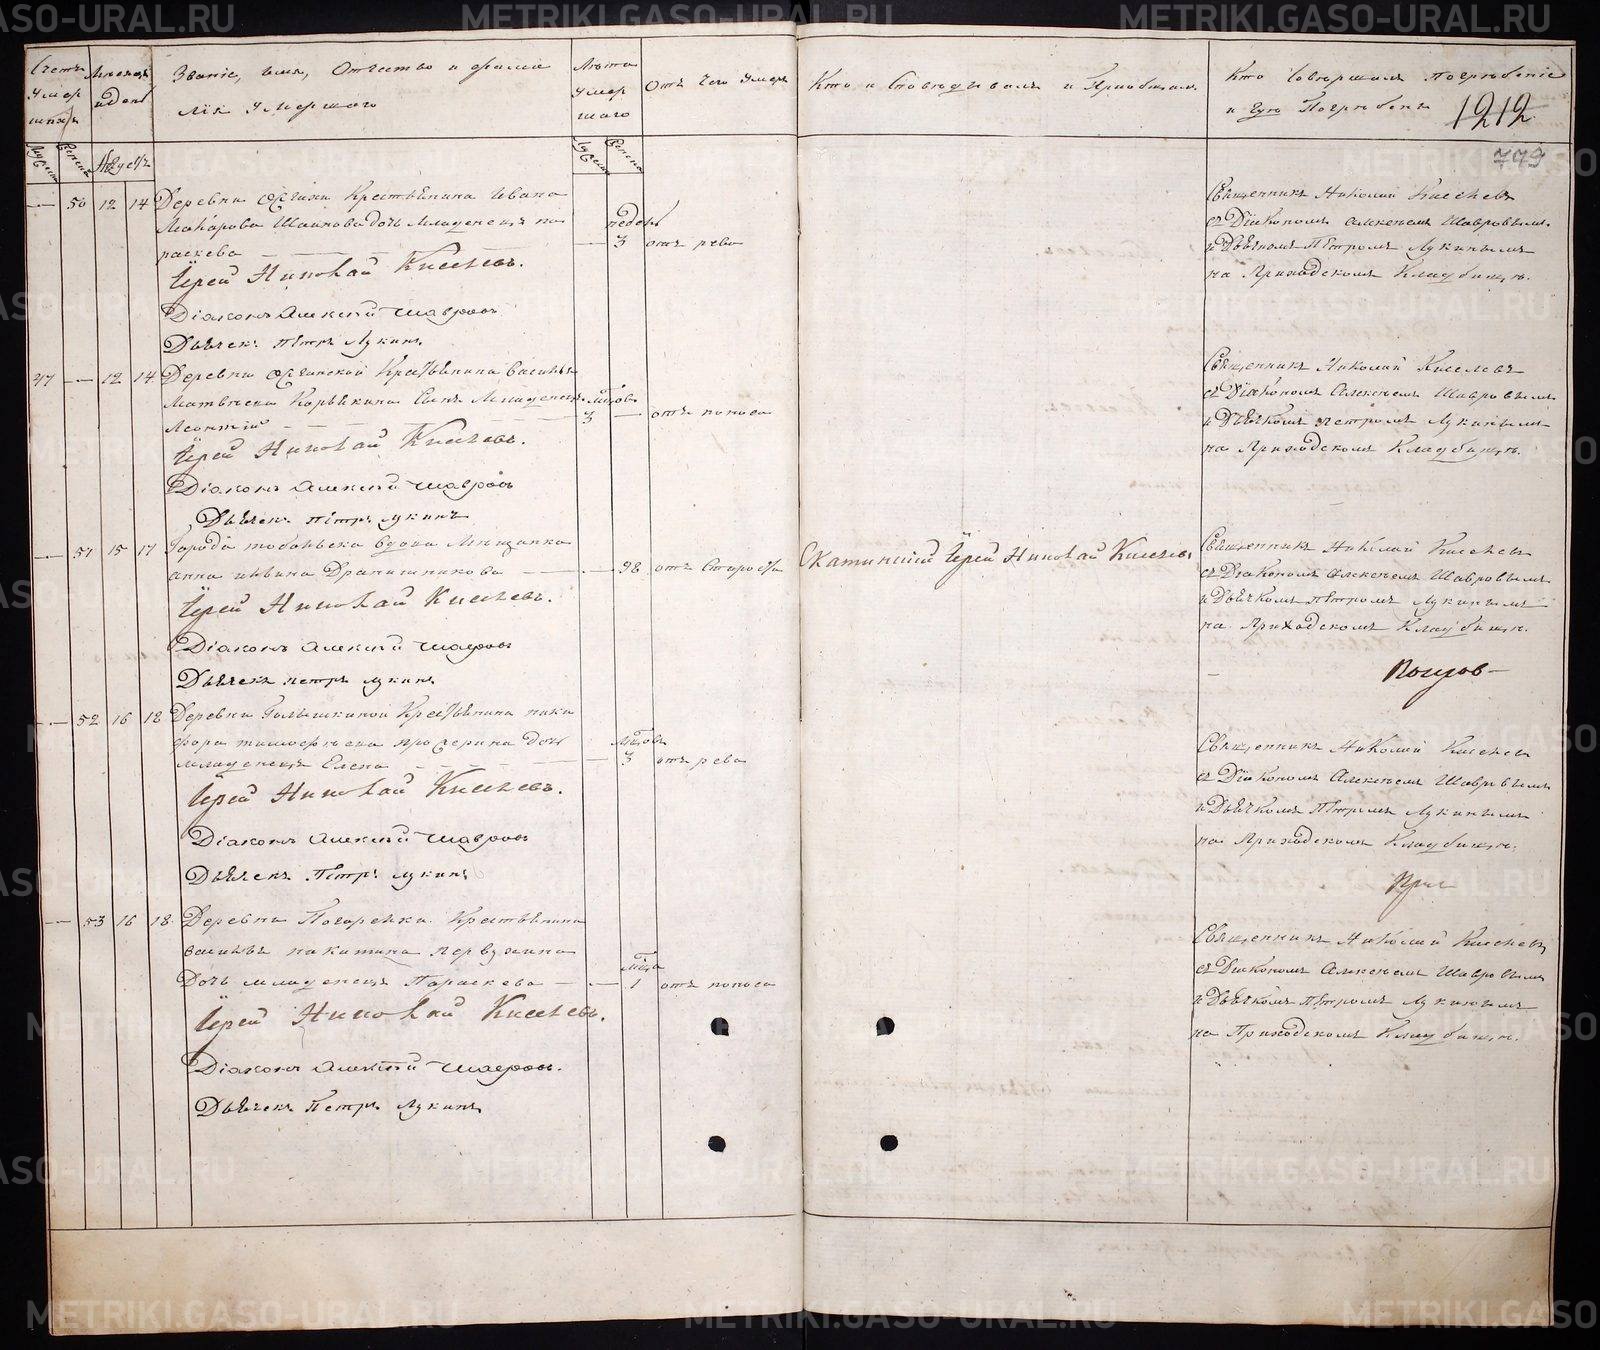 METRIKI.GASO-URAL.RU
Счетъ умер шихъ
Мѣсяцъ и день
Званіе, имя, Отчество и фами
лія Умершаго
Лѣта Умер шаго
Отъ Чего Умеръ
Кто Исповѣдывалъ и Пріобщалъ
Кто Совершалъ Погребеніе
и гдѣ Погребенъ
1212
779
Августъ
— 50 12 14 Деревни Крестьянина Ивана
Макарова дочь Младенецъ па
раскева
недель
3 отъ рева
Іерей Николай Киселевъ.
Діаконъ Алексій Шавровъ
Дьячекъ Петръ Лукинъ
Священникъ Николай Киселевъ
съ Діакономъ Алексѣемъ Шавровымъ
и Дьячкомъ Петромъ Лукинымъ
на Приходскомъ Кладбищѣ.
47 — 12 14 Деревни Крестьянина Василья
Матвѣева Сынъ Младенецъ
Леонтій
мѣсяцовъ
3 — отъ поноса
Іерей Николай Киселевъ.
Діаконъ Алексій Шавровъ
Дьячекъ Петръ Лукинъ
Священникъ Николай Киселевъ
съ Діакономъ Алексѣемъ Шавровымъ
и Дьячкомъ Петромъ Лукинымъ
на Приходскомъ Кладбищѣ.
— 51 15 17 Города тобольска вдова Мѣщанка
анна
— 98 отъ Старости
Іерей Николай Киселевъ
Іерей Николай Киселевъ.
Діаконъ Алексій Шавровъ
Дьячекъ петръ лукинъ
Священникъ Николай Киселевъ
съ Діакономъ Алексѣемъ Шавровымъ
и Дьячкомъ Петромъ Лукинымъ
на Приходскомъ Кладбищѣ.
— 52 16 18 Деревни Крестьянина ники
фора тимофѣева дочь
младенецъ Елена
мѣсяцовъ
3 отъ рева
Іерей Николай Киселевъ.
Діаконъ Алексій Шавровъ
Дьячекъ Петръ лукинъ
Священникъ Николай Киселевъ
съ Діакономъ Алексѣемъ Шавровымъ
и Дьячкомъ Петромъ Лукинымъ
на Приходскомъ Кладбищѣ.
— 53 16 18 Деревни Крестьянина
василья никитина
Дочь младенецъ Параскева
мѣсяца
— 1 отъ поноса
Іерей Николай Киселевъ.
Діаконъ Алексій Шавровъ.
Дьячекъ Петръ Лукинъ
Священникъ Николай Киселевъ
съ Діакономъ Алексѣемъ Шавровымъ
и Дьячкомъ Петромъ Лукинымъ
на Приходскомъ Кладбищѣ.